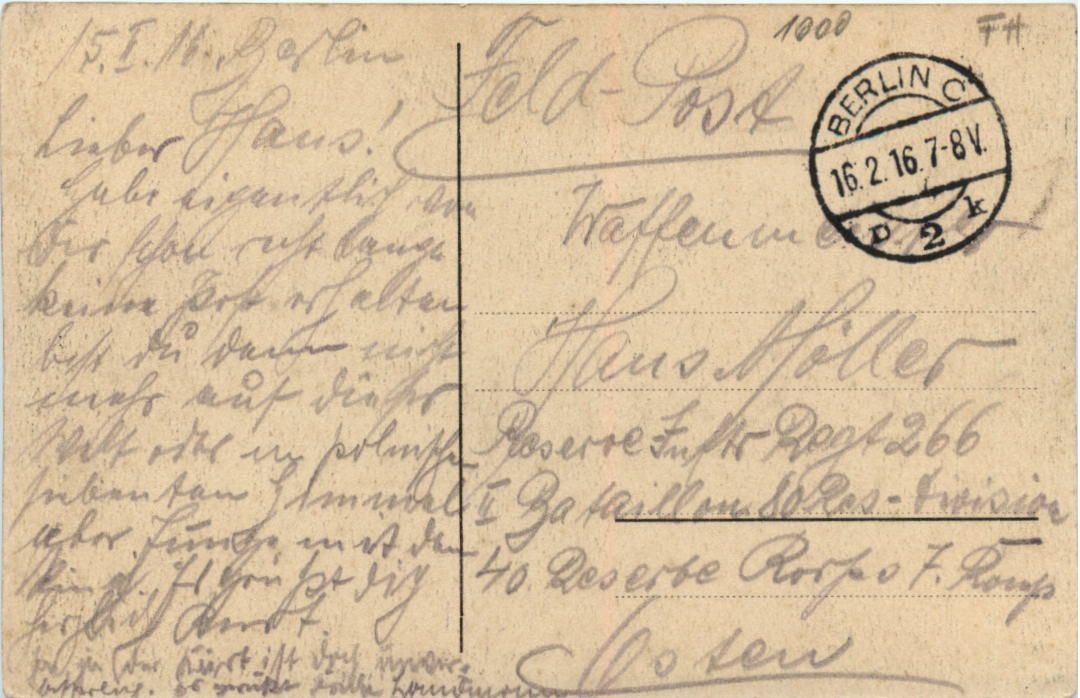 15.II.16. Berlin
Lieber Hans!
habe eigentlich von
Dir schon recht lange
keine Post erhalten
bist du denn nicht
mehr auf dieser
Welt oder im polnischen
siebenten Himmel
aber Junge mit dem
Es grüßt dich
herzlich Kurt
ja ja der Kurt ist doch
Landmann
1000
FH
Feld-Post
BERLIN C
16.2.16.7-8V.
2 k
Waffenmeister
Hans Möller
Reserve Inftr Regt 266
II Bataillon 80 Res-Division
40. Reserve Korps 7. Komp
Osten